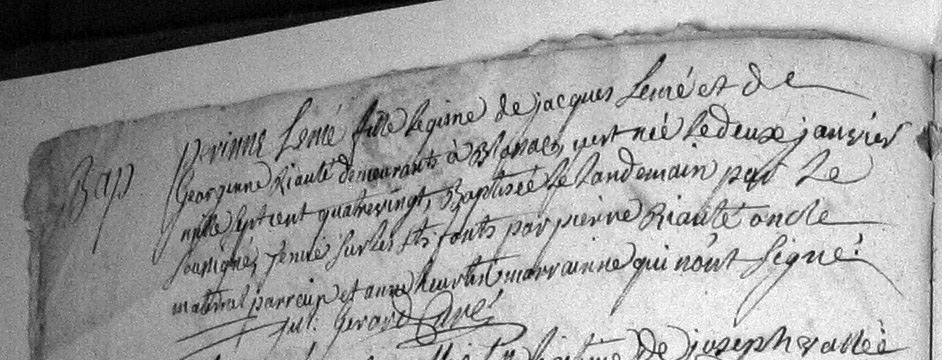 Bap
perinne Lemé fille legisme de jacques Lemé et de
Georginne Riauté demeurants à y est née le deux janvier
mille sept cent quatrevingt, Baptisée le Landemain par Le
soussigné, tenue sur les sts fonts par pierre Riauté oncle
maternel parrein et anne marrainne qui n'ont signé:
gerard Curé
legitime de joseph vallée